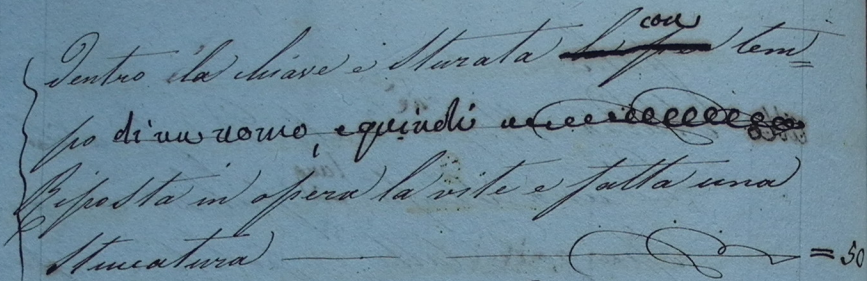 dentro la chiave e sturata con tem=
po di un uomo, e quindi
Riposta in opera la vite e fatta una
Stuccatura = 50